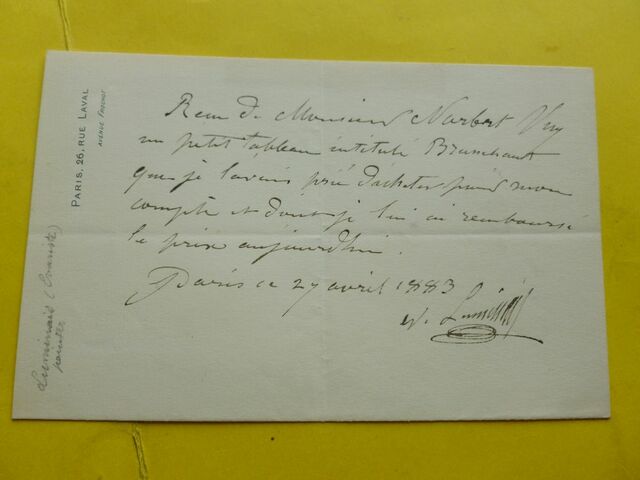 PARIS, 26, RUE LAVAL
AVENUE FROCHOT
Reçu de Monsieur Norbert
un petit tableau intitulé Brunehaut
que je l'avais prié d'acheter pour mon
compte et dont je lui ai remboursé
le prix aujourd'hui.
Paris ce 27 avril 1883
Luminais
Luminais (Evariste)
painter